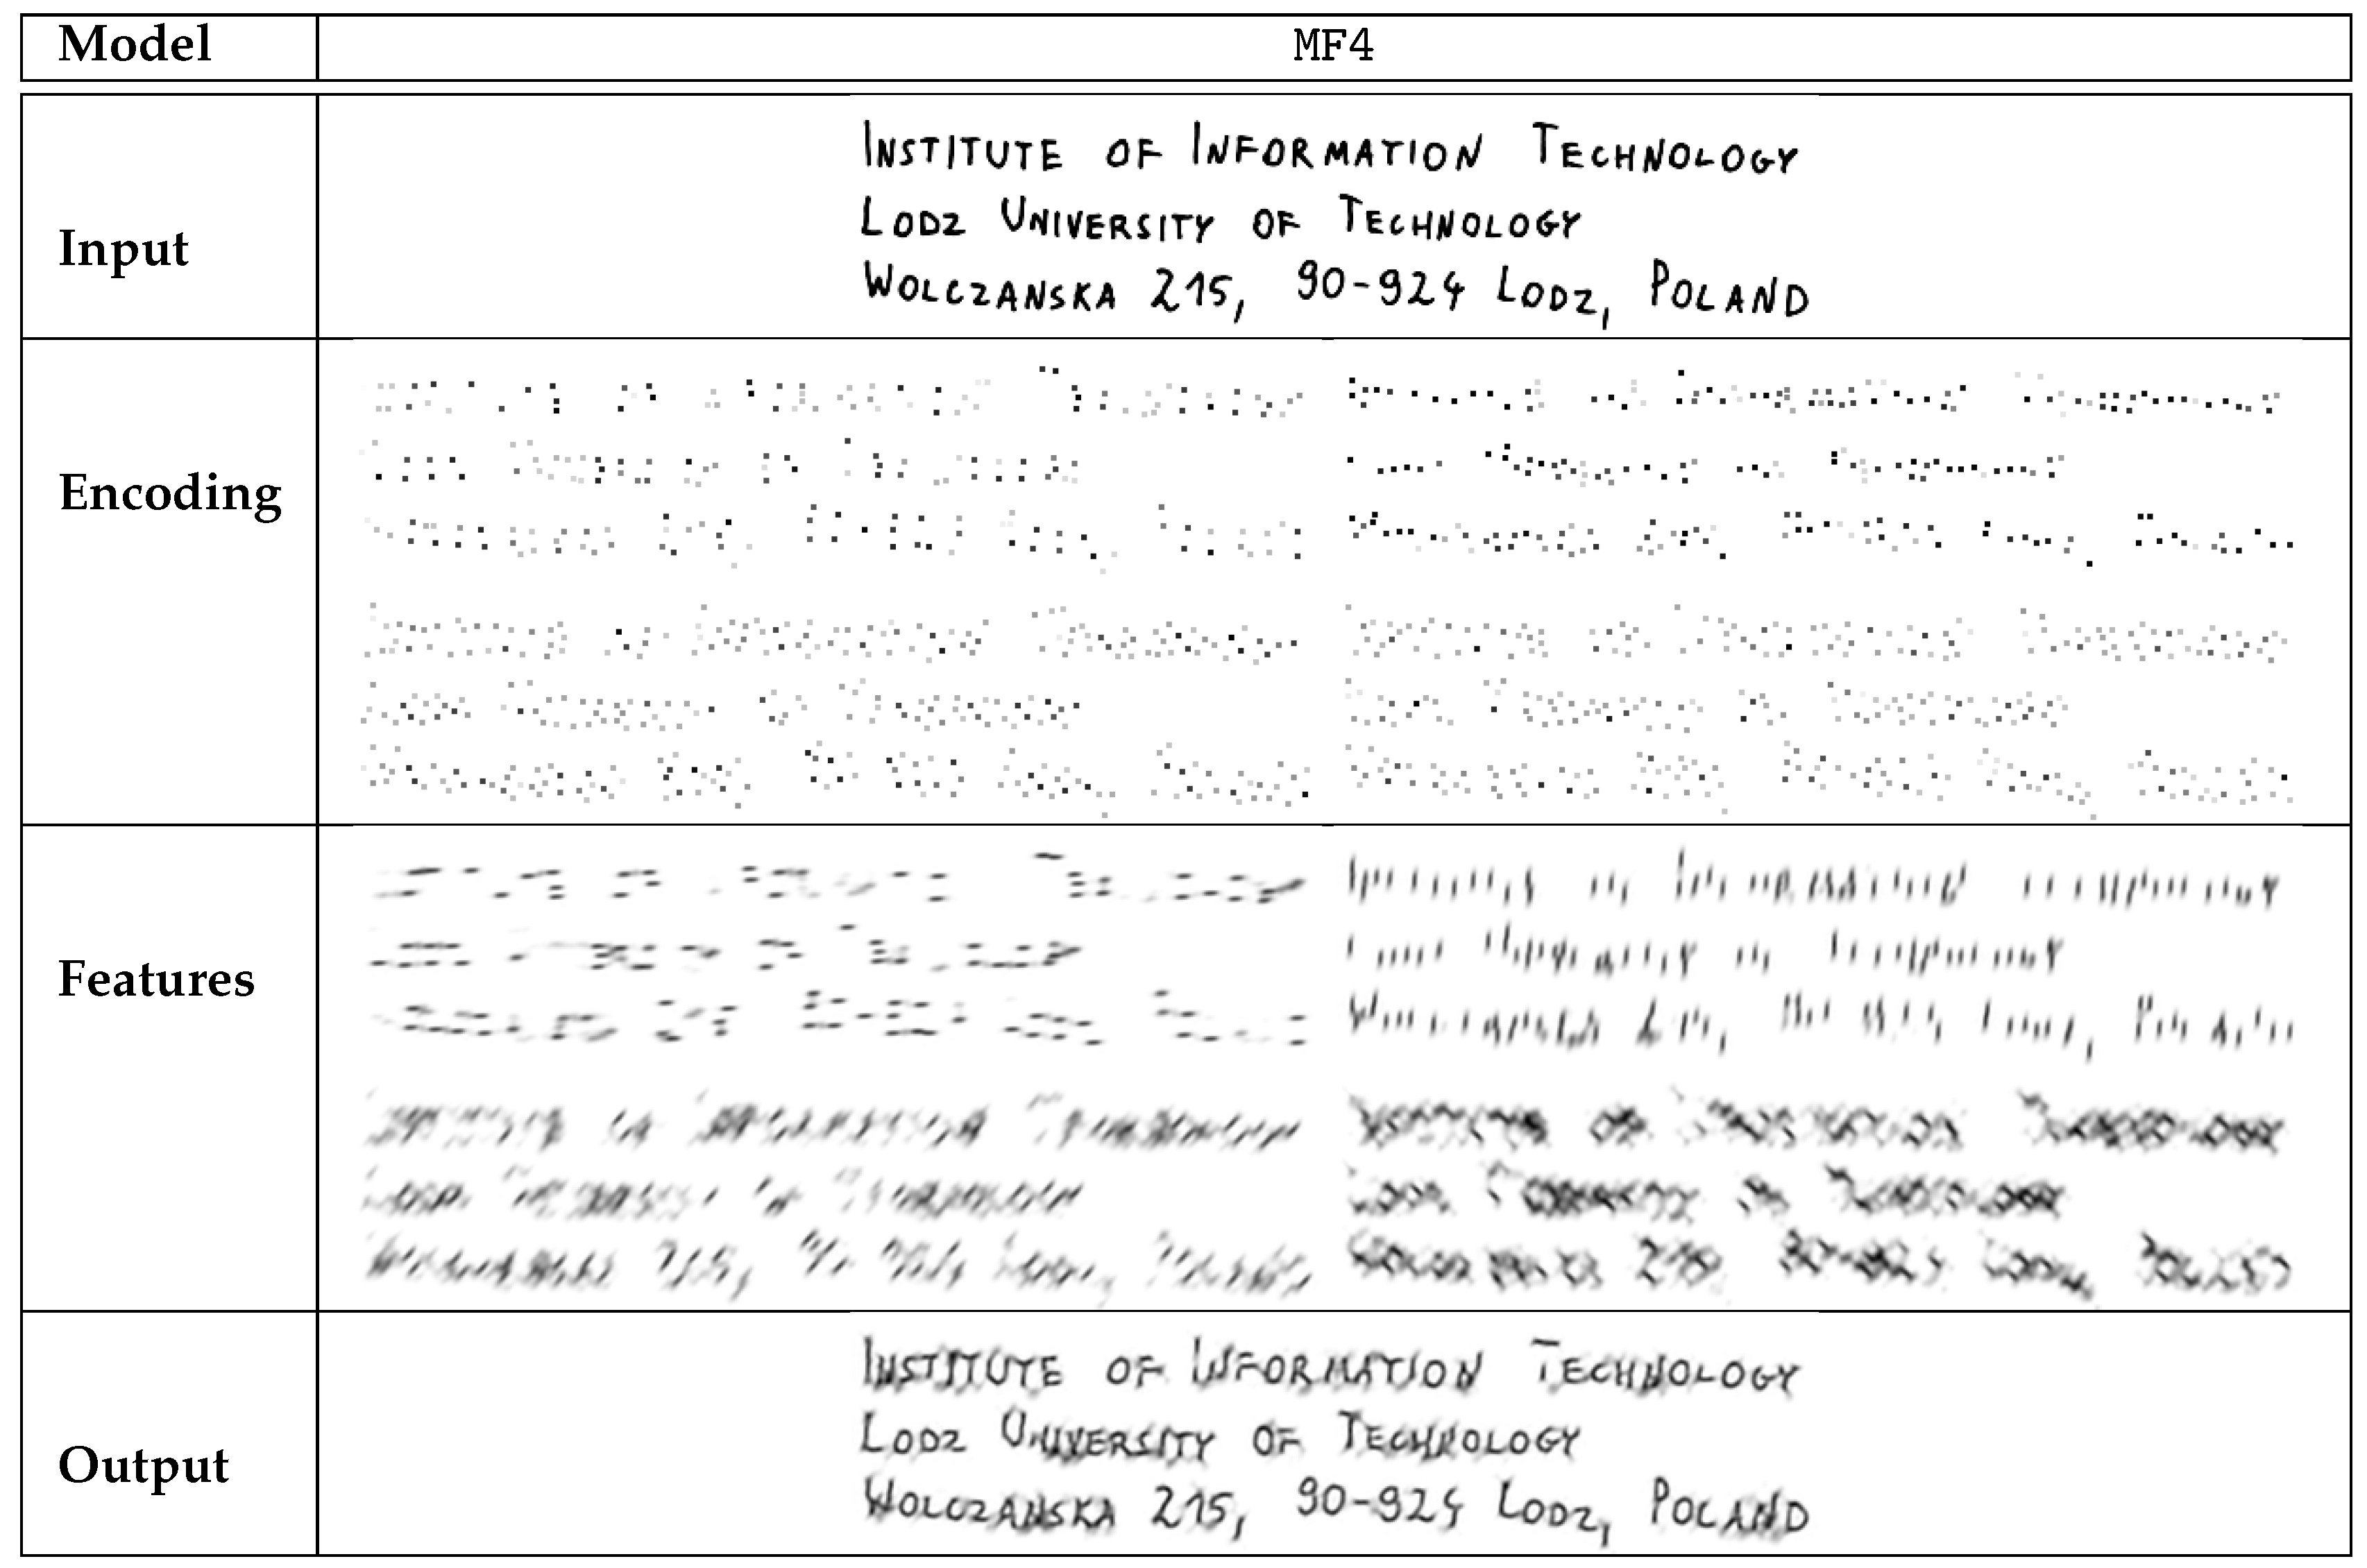 Model
MF4
Input
INSTITUTE OF INFORMATION TECHNOLOGY
LODZ UNIVERSITY OF TECHNOLOGY
WOLCZANSKA 215, 90-924 LODZ, POLAND
Encoding
Features
Output
INSTITUTE OF INFORMATION TECHNOLOGY
LODZ UNIVERSITY OF TECHNOLOGY
WOLCZANSKA 215, 90-924 LODZ, POLAND